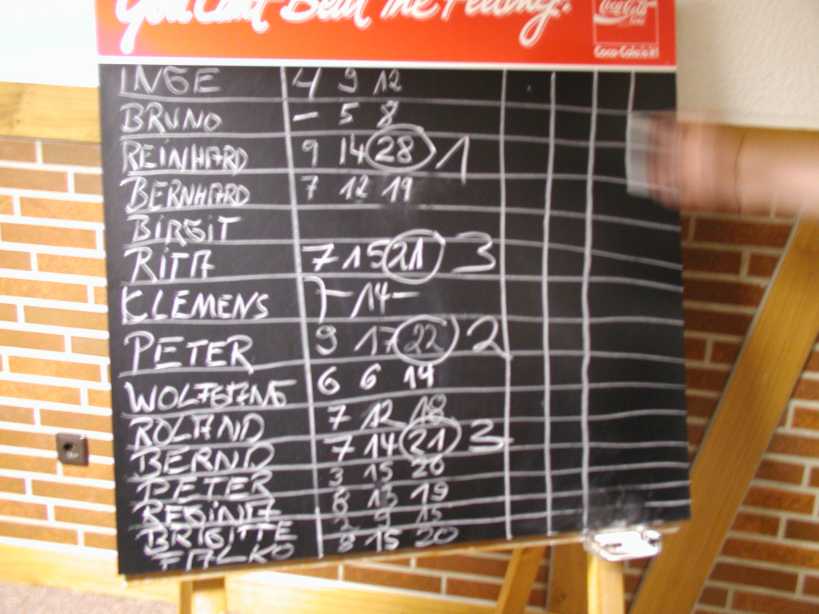 You Can't Beat The Feeling!
Coca-Cola
Coca-Cola is it!
INGE 4 9 12
BRUNO - 5 8
REINHARD 9 14 28 1
BERNHARD 7 12 19
BIRGIT
RITA 7 15 21 3
KLEMENS 7 - 14 -
PETER 9 17 22 2
WOLFGANG 6 6 14
ROLAND 7 12 18
BERND 7 14 21 3
PETER 3 15 20
REGINA 8 13 19
BRIGITTE 2 9 15
FALKO 9 15 20